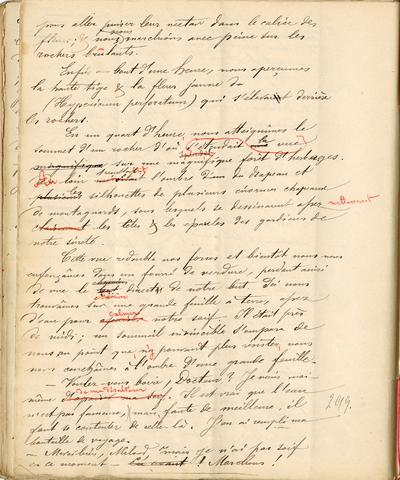 pour aller puiser leur nectar dans le calice des
fleurs, & nous marchions avec peine sur les
rochers brûlants.
Enfin au bout d'une heure, nous aperçumes
la haute tige & la fleur jaune du
(Hypericum perforatum) qui s'élevait derrière
les rochers.
En un quart d'heure, nous atteignimes le
sommet d'un rocher d'où s'étendait la vue
magnifique sur une magnifique forêt d'herbages.
Au loin l'ombre d'un drapeau et
plusieurs les silhouettes de plusieurs énormes chapeaux
de montagnards, sous lesquels se dessinaient assez nettement
les têtes & les épaules des gardiens de
notre sureté.
Cette vue redoubla nos forces et bientôt nous nous
enfonçames dans un fourré de verdure, perdant ainsi
de vue le chemin direct de notre but. Où nous
trouvâmes sur une grande feuille à terre, assez
d'eau pour calmer notre soif. Il était près
de midi; un sommeil invincible s'empara de
nous au point que n'y pouvant plus résister, nous
nous couchâmes à l'ombre d'une grande feuille.
— Voulez-vous boire, Docteur? Je vais moi-
même me désaltérer. Il est vrai que l'eau
n'est pas fameuse, mais, faute de meilleure, il
faut se contenter de celle là. J'en ai rempli ma
bouteille de voyage.
249.
— Merci, Milord, mais je n'ai pas soif
en ce moment — En avant! Marchons!